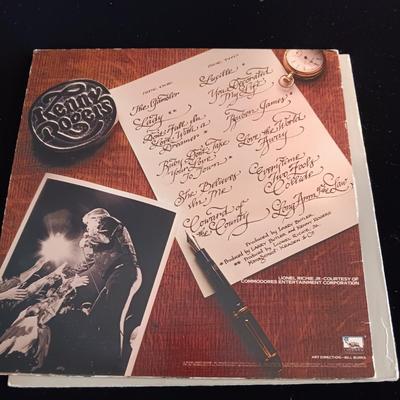 Kenny
Rogers
SIDE ONE
The Gambler
Lady **
Don't Fall In
Love With a
Dreamer *
Ruby Don't Take
Your Love
To Town
She Believes
In Me
Coward of
the County
SIDE TWO
Lucille
You Decorated
My Life
Reuben James
Love the World
Away
Every Time
Two Fools
Collide
Long Arm of the Law
Produced by Larry Butler
Produced by Larry Butler and Kenny Rogers
** Produced by Lionel Richie Jr.
Management: Kragen & Co.
LIONEL RICHIE JR.-COURTESY OF
COMMODORES ENTERTAINMENT CORPORATION
ART DIRECTION-BILL BURKS